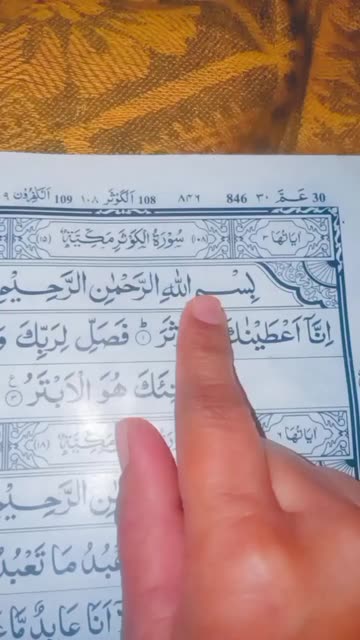 30 عَمَّ ٣٠ 846 ٨٤٦ 108 اَلْكَوْثَر ١٠٨ 109 اَلْكٰفِرُوْن
اٰيَاتُهَا ٣ (١٠٨) سُوْرَةُ الْكَوْثَرِ مَكِّيَّةٌ (١٥)
بِسْمِ اللّٰهِ الرَّحْمٰنِ الرَّحِيْمِ
اِنَّاۤ اَعْطَيْنٰكَ ثَرَ ؕ ١ فَصَلِّ لِرَبِّكَ وَ
نِئَكَ هُوَ الْاَبْتَرُ ٣
اٰيَاتُهَا ٦ مَكِّيَّةٌ (١٨)
نِ الرَّحِيْمِ
عْبُدُ مَا تَعْبُدُ
اَنَا عَابِدٌ مَّا